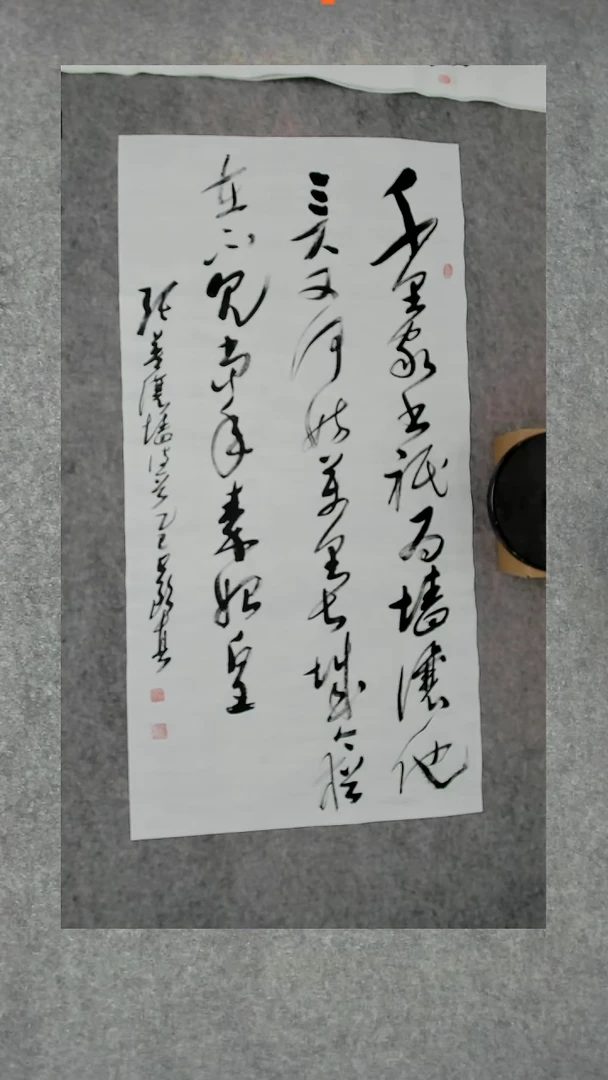 千里家书祇为墙讓他
三尺又何妨萬里长城今猶
在不见当年秦始皇
张英讓墙诗乙巳